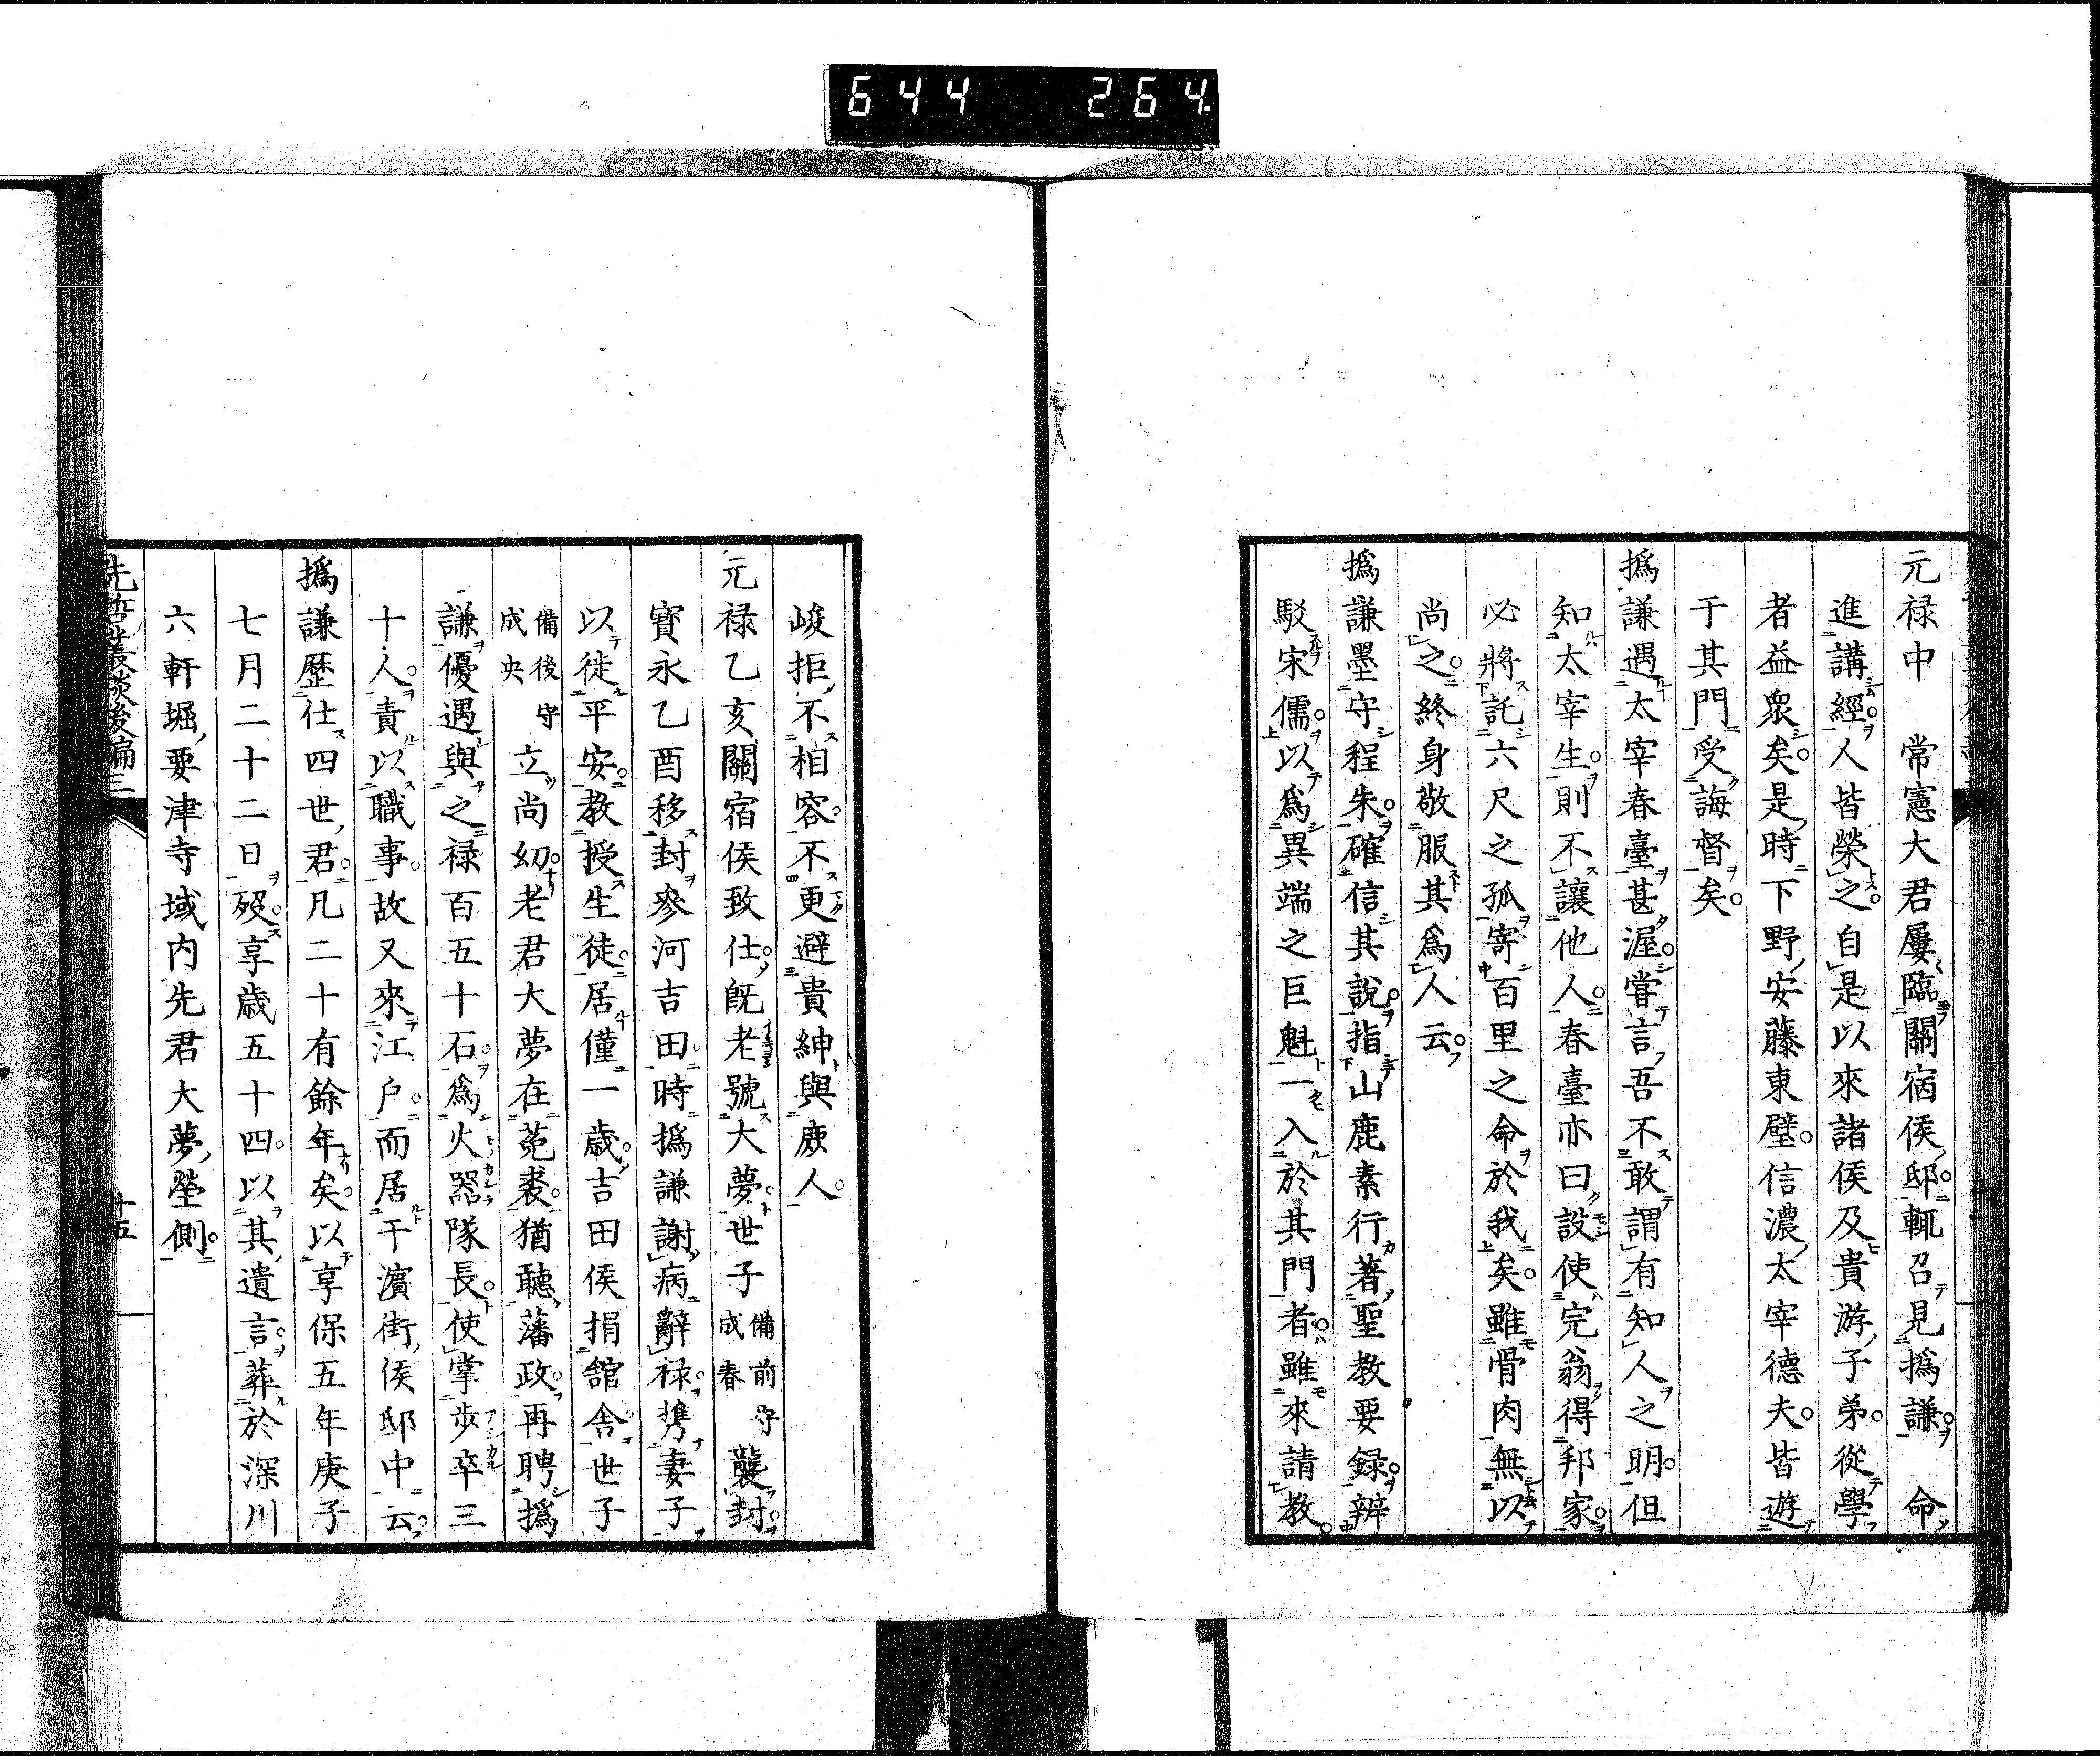 644 264
元禄中　常憲大君屢臨關宿侯邸。輒召見撝謙。　命
進講經。人皆榮之。自是以來諸侯及貴游子弟。從學
者益衆矣。是時下野安藤東壁。信濃太宰德夫。皆遊
于其門受誨督矣。
撝謙遇太宰春臺甚渥。嘗言吾不敢謂有知人之明。但
知太宰生。則不讓他人。春臺亦曰。設使完翁得邦家。
必將託六尺之孤寄百里之命於我矣。雖骨肉無以
尚之。終身敬服其爲人云。
撝謙墨守程朱。確信其說。指山鹿素行著聖教要録。辨
駁宋儒。以爲異端之巨魁。一入於其門者。雖來請教。
峻拒不相容。不更避貴紳與庻人。
元禄乙亥關宿侯致仕。既老號大夢。世子備前守成春襲封。
寳永乙酉移封參河吉田。時撝謙謝病辭禄。携妻子
以徒平安。教授生徒。居僅一歳。吉田侯捐舘舎。世子
備後守成央立尚幼。老君大夢在菟裘。猶聽藩政。再聘撝
謙優遇與之禄百五十石。爲火器隊長。使掌歩卒三
十人。責以職事。故又來江戸。而居干濵街侯邸中云。
撝謙歷仕四世君。凡二十有餘年矣。以享保五年庚子
七月二十二日歿。享歳五十四。以其遺言。葬於深川
六軒堀要津寺域内先君大夢塋側。
先哲叢談後編三
十五